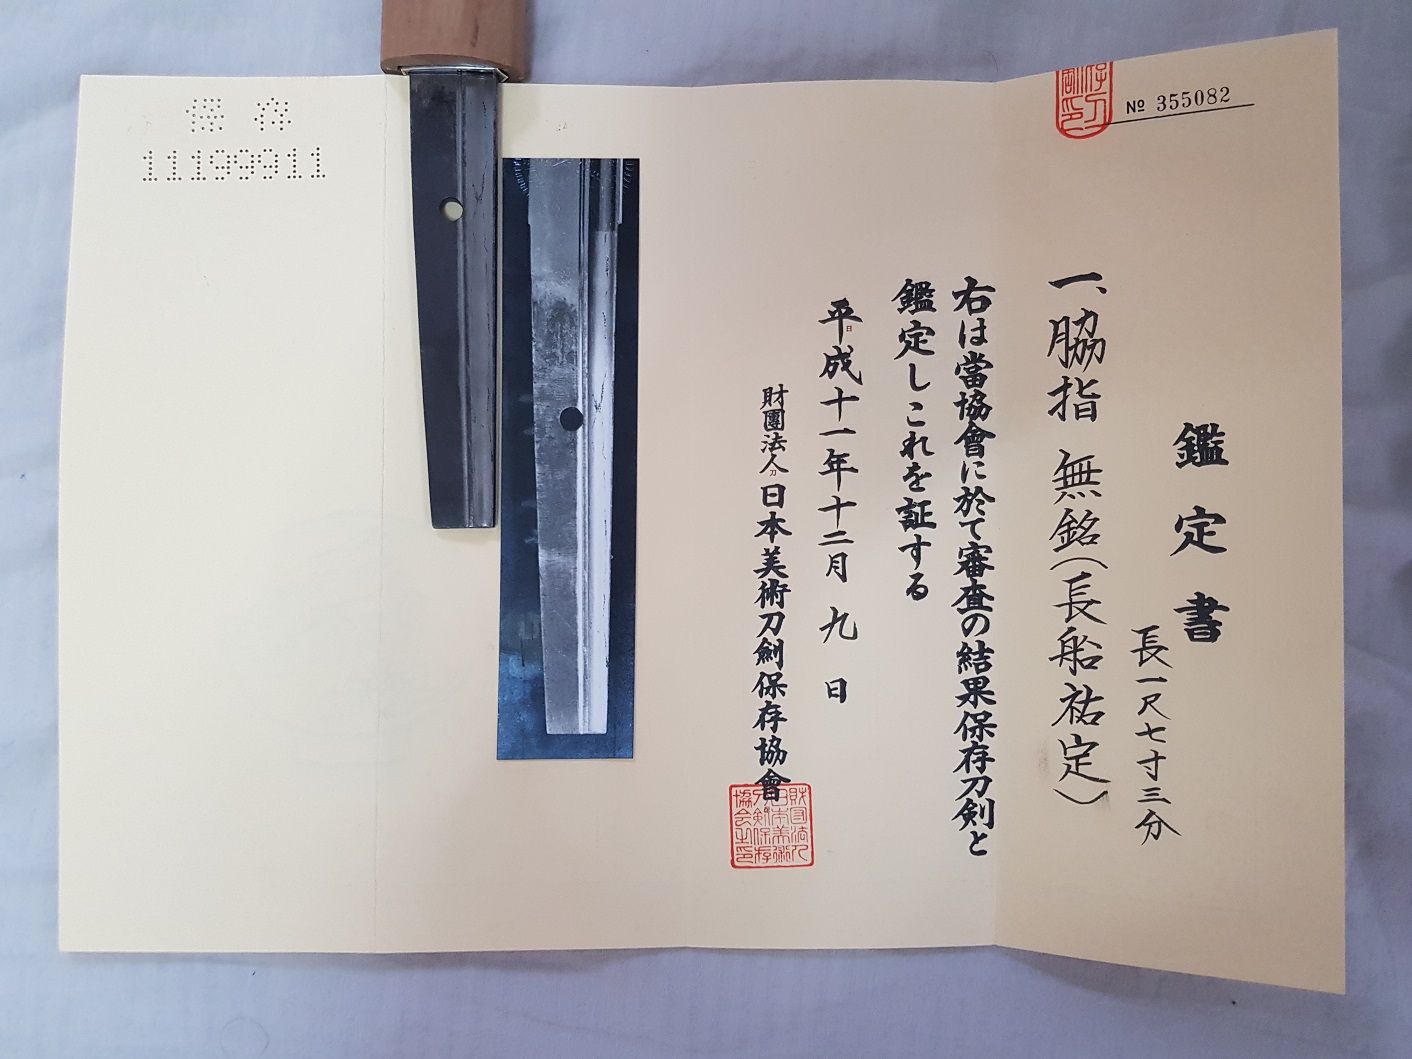 № 355082
鑑定書
長一尺七寸三分
一、脇指 無銘(長船祐定)
右は當協會に於て審査の結果保存刀剣と
鑑定しこれを証する
平成十一年十二月 九 日
財團法人 日本美術刀劍保存協會
財団法人日本美術刀剣保存協会之印
保存
11199911